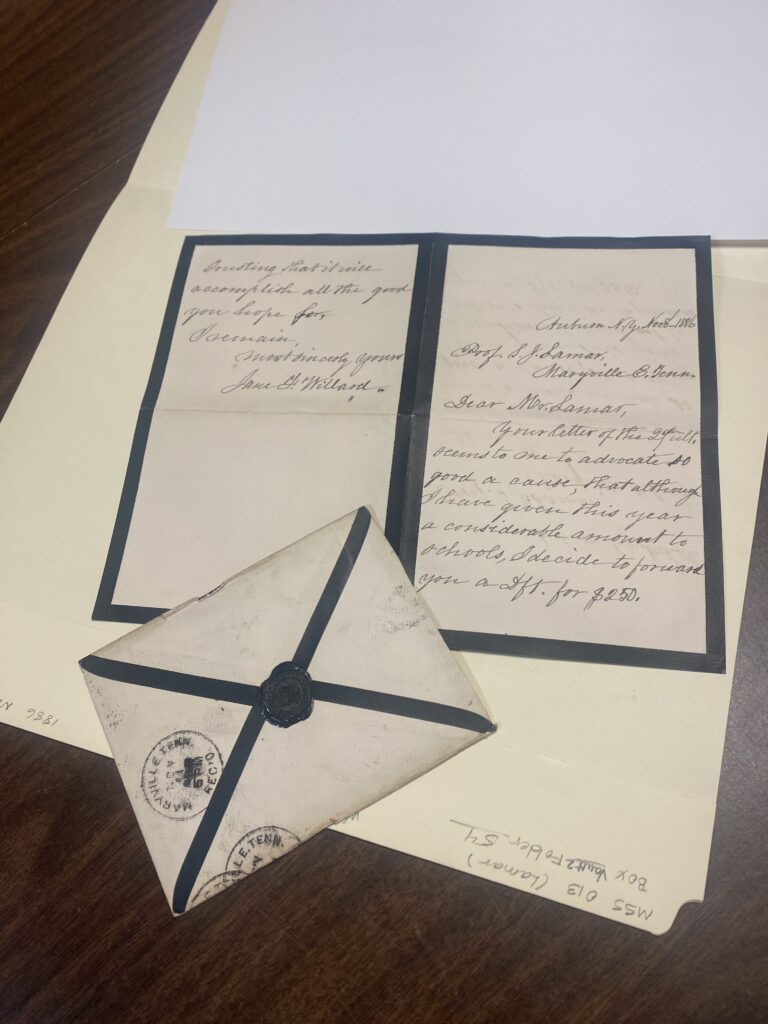 Auburn N.Y. Nov 8 - 1886
Prof. S. J. Lamar,
Maryville E. Tenn.
Dear Mr. Lamar,
Your letter of the ult.
seems to me to advocate so
good a cause, that although
I have given this year
a considerable amount to
schools, I decide to forward
you a Dft. for $250.
Trusting that it will
accomplish all the good
you hope for,
I remain,
Most sincerly yours
Jane F. Willard.
MARYVILLE, TENN.
NOV
REC'D
LLE, TENN.
1886
MSS 013 (Lamar)
Box Vault 2 Folder 54